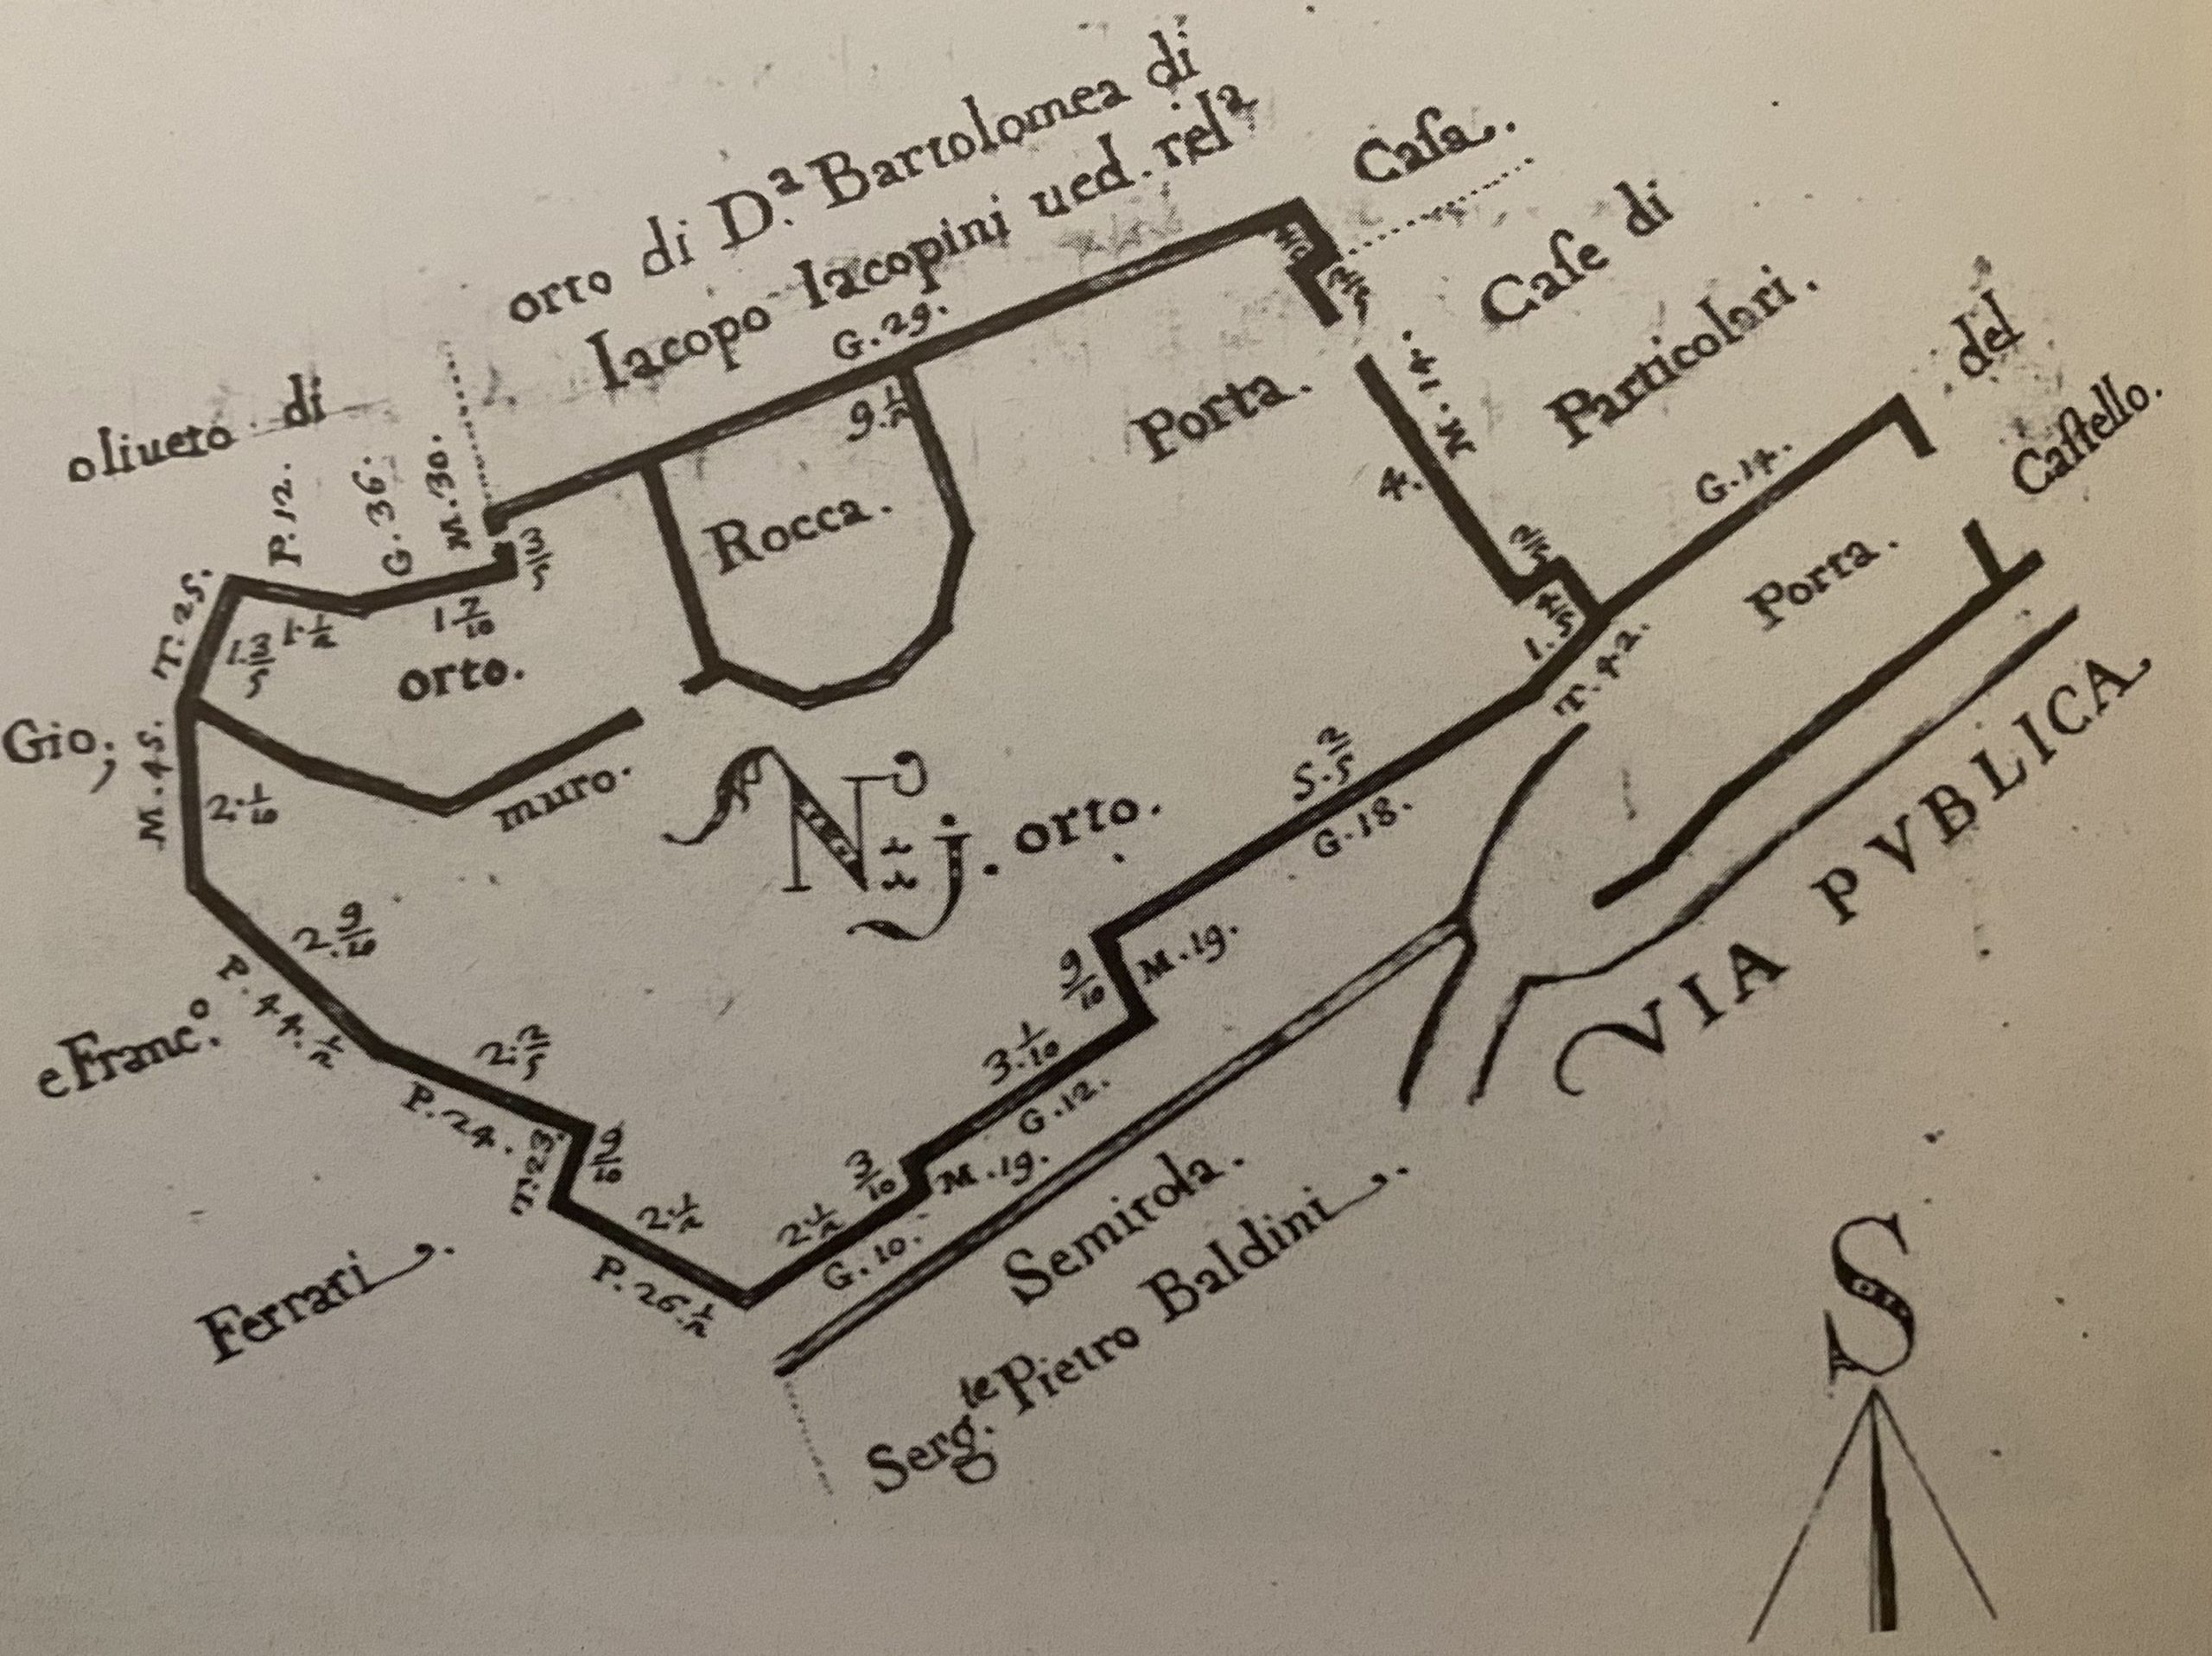 orto di D.ª Bartolomea di
Iacopo Iacopini ued. relª
Casa.
Case di
Particolari.
del
Castello.
oliueto di
P. 12.
G. 36.
M. 30.
G. 29.
9.½
Rocca.
Porta.
M. 14.
4.
2/5
G. 14.
Porta.
T. 25.
1.3/5
1.½
1.7/10
3/5
orto.
2/5
4/5
1.
T. 42.
Gio:
M. 45.
2.1/10
muro.
Nº j. orto.
5.2/5
G. 18.
VIA PVBLICA.
e Franc.º
P. 44.½
2.9/10
2.2/5
P. 24.
T. 23.
9/10
9/10
M. 19.
3.1/10
G. 12.
3/10
M. 19.
2.½
P. 26.½
2.½
G. 10.
Ferrari.
Semitola.
Serg.te Pietro Baldini.
S